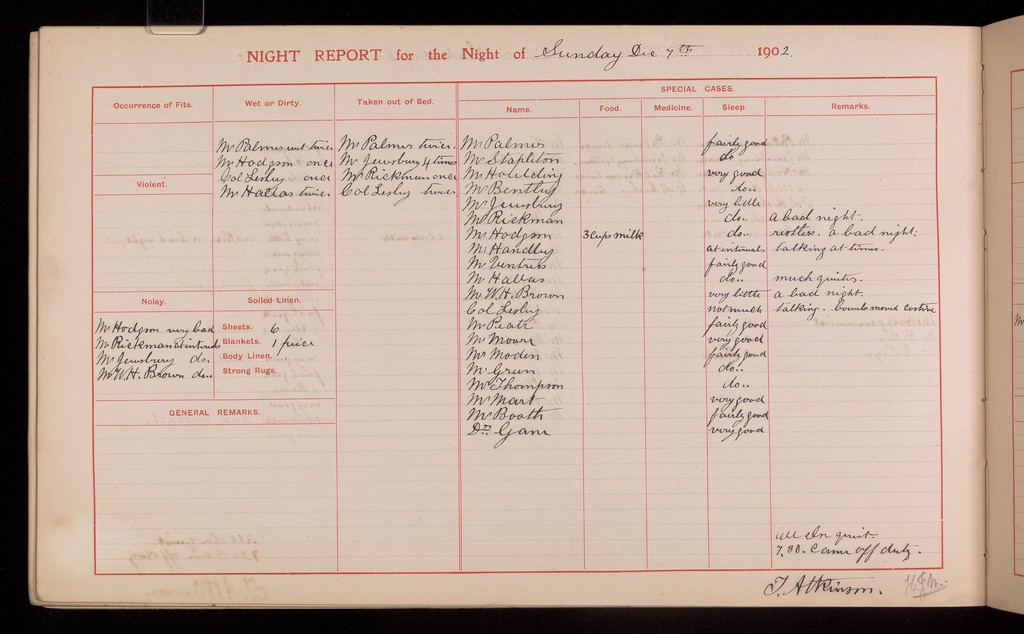 NIGHT REPORT for the Night of Sunday Dec 7th 1902.
Occurrence of Fits.
Wet or Dirty.
Mr Palmer wet twice
Mr Hodgson once
Col Lesby once
Mr Hallas twice
Taken out of Bed.
Mr Palmer twice.
Mr Jewsbury 4 times
Mr Rickman once
Col Lesby twice
Violent.
Noisy.
Mr Hodgson very bad
Mr Rickman at intervals
Mr Jewsbury do.
Mr W.H. Brown do..
Soiled Linen.
Sheets. 6
Blankets. 1 piece
Body Linen.
Strong Rugs.
GENERAL REMARKS.
SPECIAL CASES.
Name. Food. Medicine. Sleep. Remarks.
Mr Palmer fairly good
Mr Stapleton do
Mr Houlding very good
Mr Bentley do..
Mr Jewsbury very little
Mr Rickman do.. a bad night.
Mr Hodgson 3 Cups milk do.. restless. a bad night.
Mr Handley at intervals talking at times.
Mr Ventris fairly good
Mr Hallas do.. much quieter.
Mr W.H. Brown very little a bad night.
Col Lesby not much talking. bowels moved
Mr Peatr fairly good
Mr Moore very good
Mr Moden fairly good
Mr Green do..
Mr Thompson do..
Mr Mart very good
Mr Booth fairly good
Dr Game very good
All else quiet.
7.30. Came off duty.
T. Atkinson.